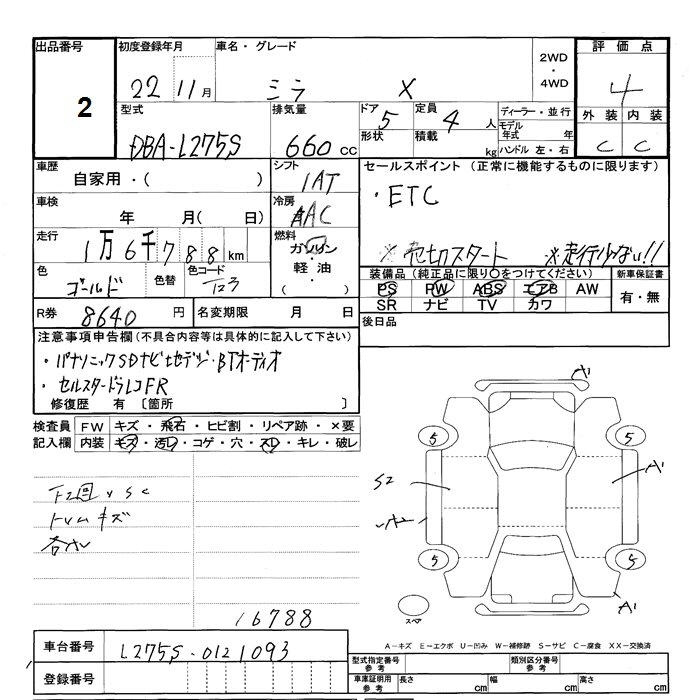 出品番号 初度登録年月 車名・グレード 2WD・4WD 評価点
2 22 11月 ミラ X 4
型式 排気量 ドア 5 定員 4人 ディーラー・並行 外装 内装
DBA-L275S 660cc 形状 積載 kg モデル年式 年 ハンドル 左・右 C C
車歴 自家用・( ) シフト IAT セールスポイント(正常に機能するものに限ります)
車検 年 月( 日) 冷房 AAC ・ETC
走行 1万6千788km 燃料 ガソリン・軽油・( ) ※売切スタート ※走行少ない!!
色 ゴールド 色替 色コード 装備品(純正品に限り○をつけてください) 新車保証書
PS PW ABS エアB AW 有・無
SR ナビ TV カワ
R券 8640円 名変期限 月 日 後日品
注意事項申告欄(不具合内容等は具体的に記入して下さい)
・パナソニックSDナビ地デジ・BTオーディオ
・セルスタードラレコFR
修復歴 有 〔箇所 〕
検査員 FW キズ・飛石・ヒビ割・リペア跡・×要
記入欄 内装 キズ・汚レ・コゲ・穴・スレ・キレ・破レ
A
5 5
S2 A1
下2回りSC
トリムキズ
5 5
A1
16788
スペア
A-キズ E-エクボ U-凹み W-補修跡 S-サビ C-腐食 XX-交換済
車台番号 L275S-0121093 型式指定番号 参考 類別区分番号 参考
登録番号 車庫証明用 参考 長さ cm 幅 cm 高さ cm